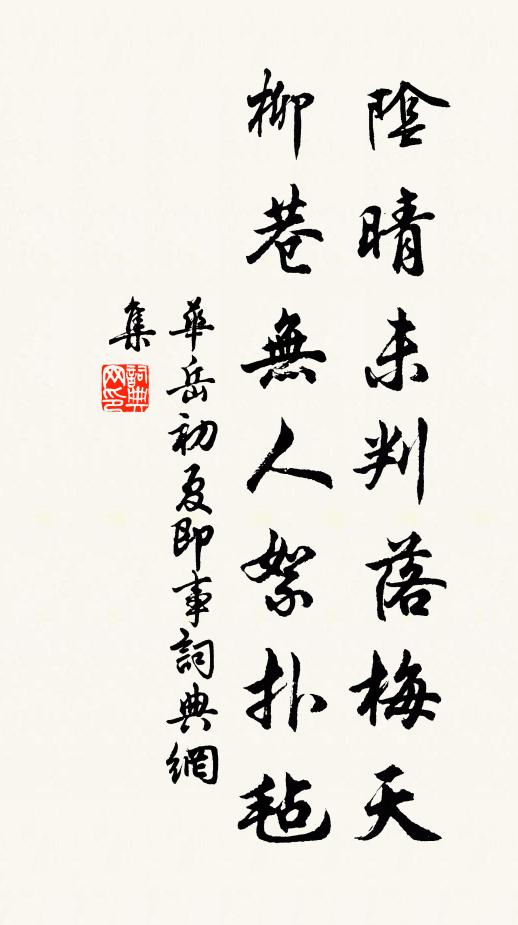 陰晴未判落梅天
柳巷無人絮扑毡
華岳初夏即事詞典網
集
詞典
网印